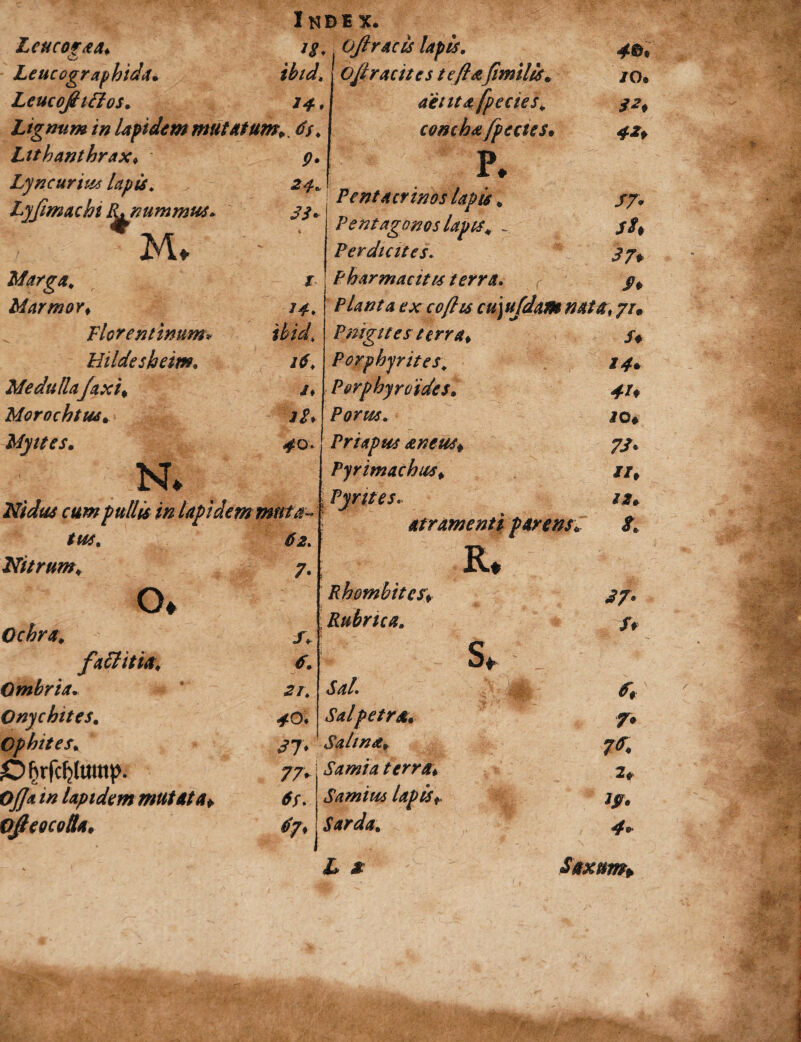 INDEX.
Leucogæa. 18.
Leucographida. ibid.
Leucostictos. 14.
Lignum in lapidem mutatum. 65.
Lithanthrax. 9.
Lyncurius lapis. 24.
Lysimachi nummus. 33.
M.
Marga. 1
Marmor. 14.
Florentinum. ibid.
Hildesheim. 16.
Medulla saxi.
Morochtus. 18.
Myites. 40.
N.
Nidus cum pullis in lapidem muta-
tus. 62.
Nitrum. 7.
O.
Ochra. 5.
factitia. 6.
Ombria. 21.
Onychites. 40.
Ophites. 37.
Ohrschlump. 77.
Ossa in lapidem mutata. 65.
Osteocolla. 67.
Ostracis lapis. 40.
Ostracites testæ similis. 10.
aëtitæ species. 32.
conchæ species. 42.
P.
Pentacrinos lapis. 57.
Pentagonos lapis. 58.
Perdicites. 37.
Pharmacitis terra. 9.
Planta ex costis cujusdam nata. 71.
Pnigites terra. 5.
Porphyrites. 14.
Porphyroïdes. 41.
Porus. 10.
Priapus æneus. 73.
Pyrimachus. 11.
Pyrites. 12.
atramenti parens. 8.
R.
Rhombites. 37.
Rubrica. 5.
S.
Sal. 6.
Salpetræ. 7.
Salinæ. 76.
Samia terra. 2.
Samius lapis. 19.
Sarda. 4.
L 2 Saxum.